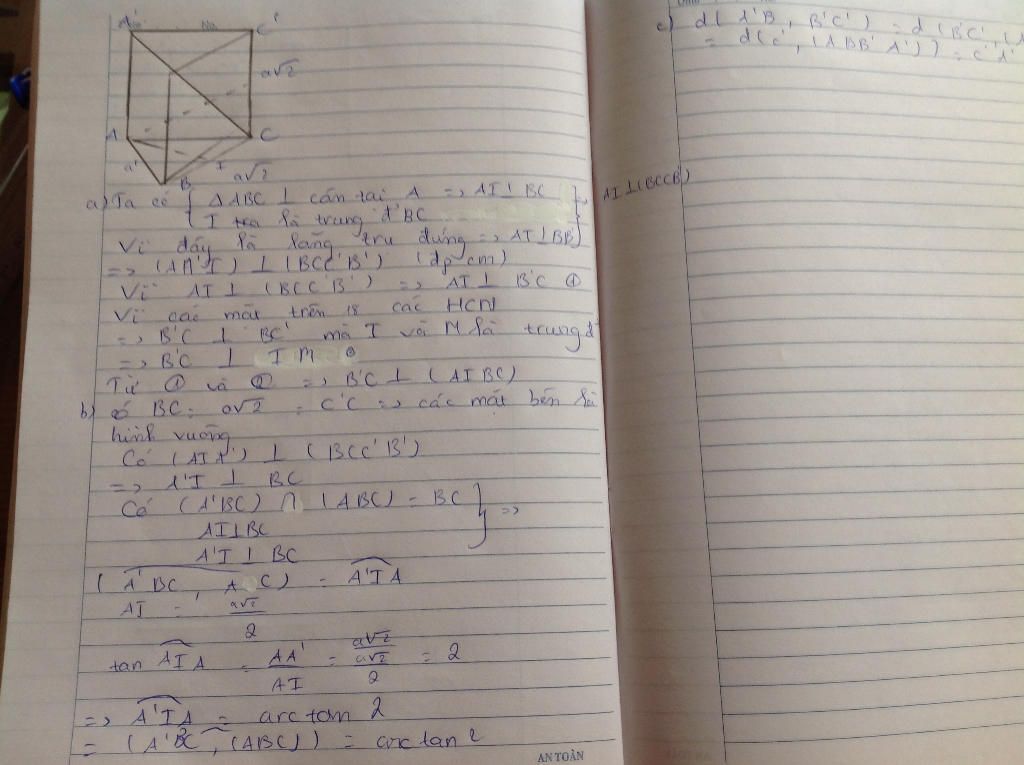 A'
C'
a√2
A
C
a
I
a√2
B
a) Ta có { ΔABC ⊥ cân tại A => AI ⊥ BC
I là trung đ' BC
} => AI ⊥ (BCC'B')
Vì đấy là lăng trụ đứng => AI ⊥ BB'
=> (AA'I) ⊥ (BCC'B') (đpcm)
Vì AI ⊥ (BCC'B') => AI ⊥ B'C ①
Vì các mặt trên là các HCN
=> B'C ⊥ BC' mà I và M là trung đ'
=> B'C ⊥ IM ②
Từ ① và ② => B'C ⊥ (AIBC)
b) có BC = a√2 = C'C => các mặt bên là
hình vuông
Có (AIA') ⊥ (BCC'B')
=> A'I ⊥ BC
Có (A'BC) ∩ (ABC) = BC } =>
AI ⊥ BC
A'I ⊥ BC
(A'BC, A C) = A'IA
AI = a√2/2
tan AIA = AA'/AI = a√2/(a√2/2) = 2
=> A'IA = arc tan 2
= (A'BC, (ABC)) = arc tan 2
AN TOÀN
c) d( A'B, B'C') = d (B'C', (A
= d(C', (ABB'A')) = C'A'